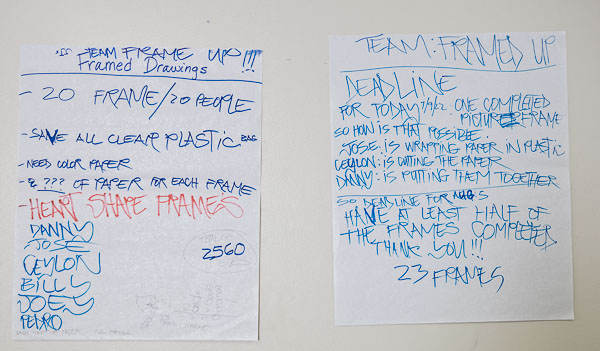 TEAM FRAME UP!!!
Framed Drawings
- 20 FRAME/20 PEOPLE
- SAVE ALL CLEAR PLASTIC BAG
- NEED COLOR PAPER
- & ??? OF PAPER FOR EACH FRAME
- HEART SHAPE FRAMES
DANNY
JOSE
CEYLON
BILLY
JOEY
PEDRO
2560
TEAM: FRAMED UP
DEADLINE
FOR TODAY ONE COMPLETED
PICTURE FRAME
SO HOW IS THAT POSSIBLE.
JOSE: IS WRAPPING PAPER IN PLASTIC
CEYLON: IS CUTTING THE PAPER
DANNY: IS PUTTING THEM TOGETHER
SO DEADLINE FOR AUG 5
HAVE AT LEAST HALF OF
THE FRAMES COMPLETED
THANK YOU!!!
23 FRAMES